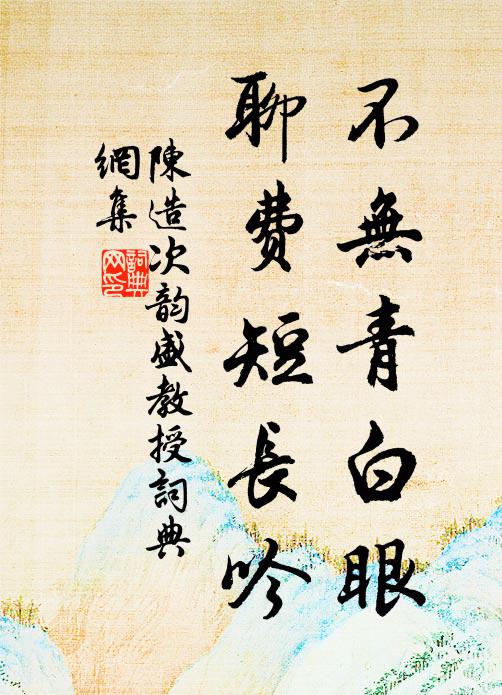 不無青白眼
聊費短長吟
陳造次韵盛教授詞典
網集
詞典
网印